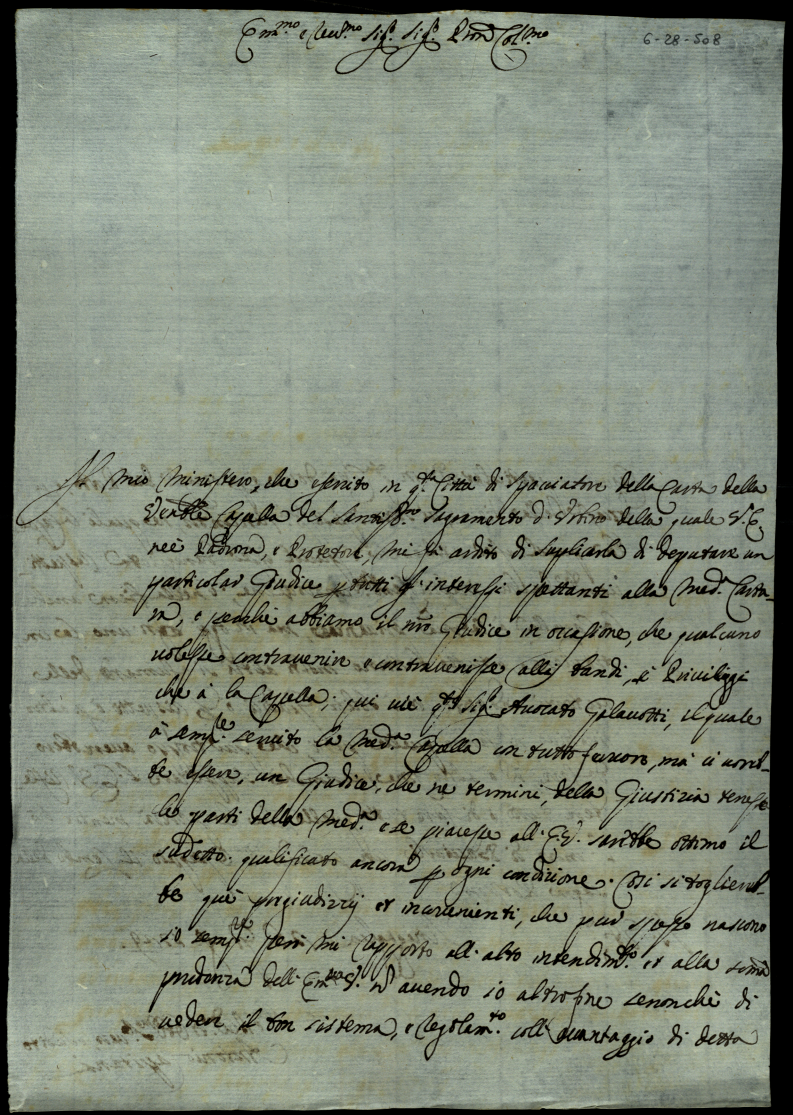 Em.mo e Reu.mo Sig.e Sig.e Pron Col.mo
6-28-508
Il mio Ministero, che esercito in q.ta Città di Spacciatore della Carta della
Ven.le Capella del Santiss.mo Sagramento d'Urbino della quale V.E.
n'è Padrona, e Protetore, mi fà ardito di supliarla di deputare un
particolar Giudice p tutti gl'interessi spettanti alla Med.a Carta-
ra, e perchè abbiamo il nro Giudice in occasione, che qualcuno
volesse contravenir e contravenisse alli bandi, e Privileggi
che à la Capella; qui vi è q.to Sig.e Avocato Gilavotti, il quale
à semp.e servito la Med.a Capella con tutto fervore, mà ci vorreb-
be essere, un Giudice, che ne termini, della Giustizia tenesse
le parti della Med.a e se piacesse all'E.V. sarebbe ottimo il
sudetto qualificato ancora p ogni condizione. Così si toglierebb-
be que pregiudizzij et incovenienti, che pur spesso nascono
io semp.e però mi rapporto all'alto intendim.to et alla somã
prudenza dell'Em.za V. nõ avendo io altro fine senonchè di
vedere il bon sistema, e regolam.to coll'avantaggio di detta